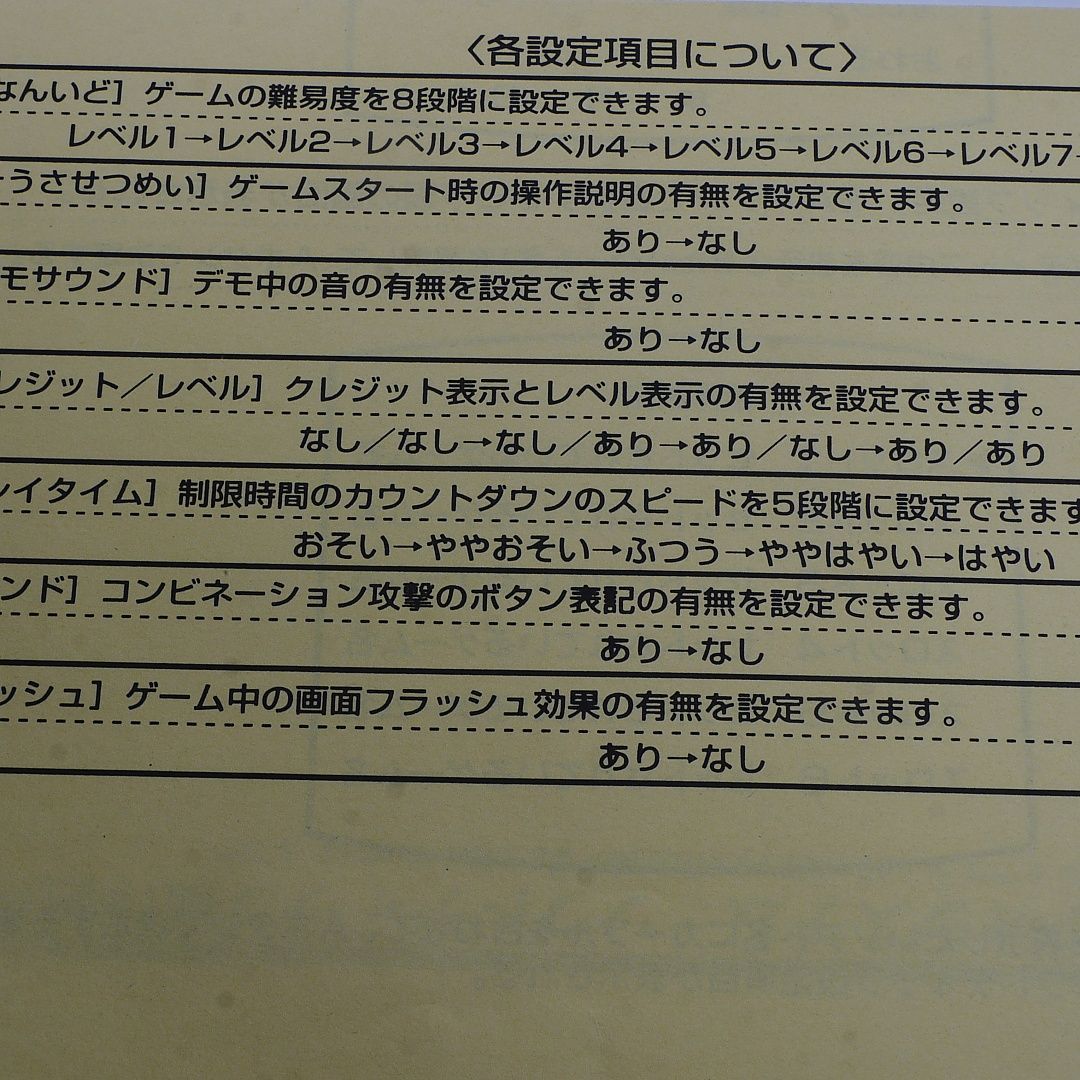 〈各設定項目について〉
なんいど］ゲームの難易度を8段階に設定できます。
レベル1→レベル2→レベル3→レベル4→レベル5→レベル6→レベル7→
うさせつめい］ゲームスタート時の操作説明の有無を設定できます。
あり→なし
モサウンド］デモ中の音の有無を設定できます。
あり→なし
レジット／レベル］クレジット表示とレベル表示の有無を設定できます。
なし／なし→なし／あり→あり／なし→あり／あり
レイタイム］制限時間のカウントダウンのスピードを5段階に設定できます
おそい→ややおそい→ふつう→ややはやい→はやい
ンド］コンビネーション攻撃のボタン表記の有無を設定できます。
あり→なし
ッシュ］ゲーム中の画面フラッシュ効果の有無を設定できます。
あり→なし